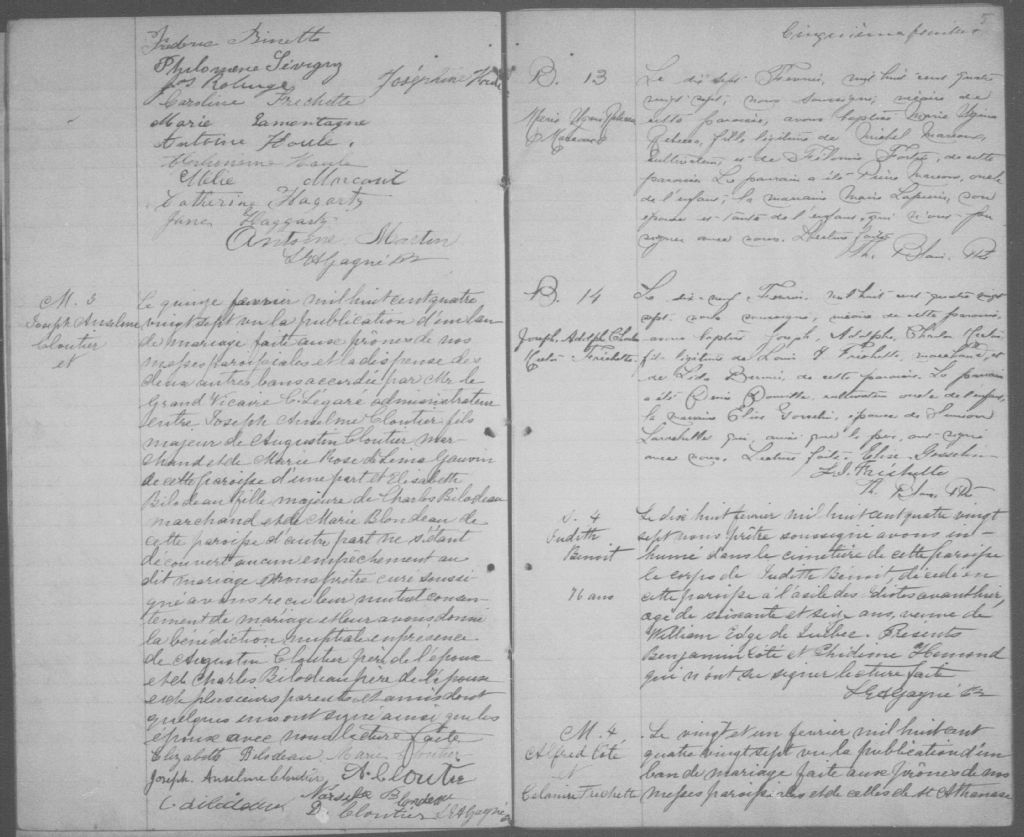 Philomène Sévigny
Joséphine
Caroline Frechette
Marie Lamontagne
Antoine Houle.
Houle
Marcout
Catherine Hagarty
Jane Haggarty
Antoine Martin
LEAGagné Ptr
M. 3
Joseph Anselme
Cloutier
et
Le quinze fevrier mil huit cent quatre
vingt sept vu la publication d'un ban
de mariage faite aux prônes de nos
messes paroissiales et la dispense des
deux autres bans accordée par Mr le
Grand Vicaire C. Legaré administrateur
entre Joseph Anselme Cloutier fils
majeur de Augustin Cloutier mar-
chand et de Marie Rose de Lima Gauvin
de cette paroisse d'une part et Elisabeth
Bilodeau fille majeure de Charles Bilodeau
marchand et de Marie Blondeau de
cette paroisse d'autre part ne s'étant
découvert aucun empêchement au
dit mariage nous prêtre curé soussi-
gné avons reçu leur mutuel consen-
tement de mariage et leur avons donné
la bénédiction nuptiale en présence
de Augustin Cloutier père de l'époux
et de Charles Bilodeau père de l'épouse
et de plusieurs parents et amis dont
quelques uns ont signé ainsi que les
époux avec nous lecture faite
Elizabeth Bilodeau Marie Cloutier
Joseph Anselme Cloutier A. Cloutier
Blondeau
D. Cloutier LEAGagné
5
Cinquième feuillet
B. 13
Marie
Marcoux
Le dix sept Fevrier, mil huit cent quatre
vingt sept, nous soussigné, vicaire de
cette paroisse, avons baptisé Marie
Rebecca, fille légitime de Michel Marcoux,
cultivateur, et de Fortier, de cette
paroisse. Le parrain a été Marcoux, oncle
de l'enfant, la marraine Marie son
épouse et tante de l'enfant, qui n'ont su
signer avec nous. Lecture faite
Th. Blais. Ptr
B. 14
Joseph Adolph Charles
Frechette
Le dix-neuf Fevrier mil huit cent quatre vingt
sept nous soussigné, vicaire de cette paroisse,
avons baptisé Joseph, Adolphe, Charles
fils légitime de Louis J Frechette, marchand, et
de de cette paroisse. Le parrain
a été cultivateur oncle de l'enfant,
la marraine Elise Gosselin, épouse de Simeon
Larochelle qui, ainsi que le père, ont signé
avec nous. Lecture faite. Elise Gosselin
L.J. Fréchette
Th. Blais Ptr
S. 4
Judith
Benoit
76 ans
Le dix huit fevrier mil huit cent quatre vingt
sept nous prêtre soussigné avons in-
humé dans le cimetière de cette paroisse
le corps de Judith Benoit, décédé en
cette paroisse à l'asile des idiotes avant hier
agé de soixante et seize ans, veuve de
William Edge de Québec. Présents
Benjamin Coté et Hemond
qui n'ont su signer lecture faite
LEAGagné Ptr
M. 4.
Alfred Coté
et
Frechette
Le vingt et un fevrier mil huit cent
quatre vingt sept vu la publication d'un
ban de mariage faite aux prônes de nos
messes paroissiales et de celles de St Athanase